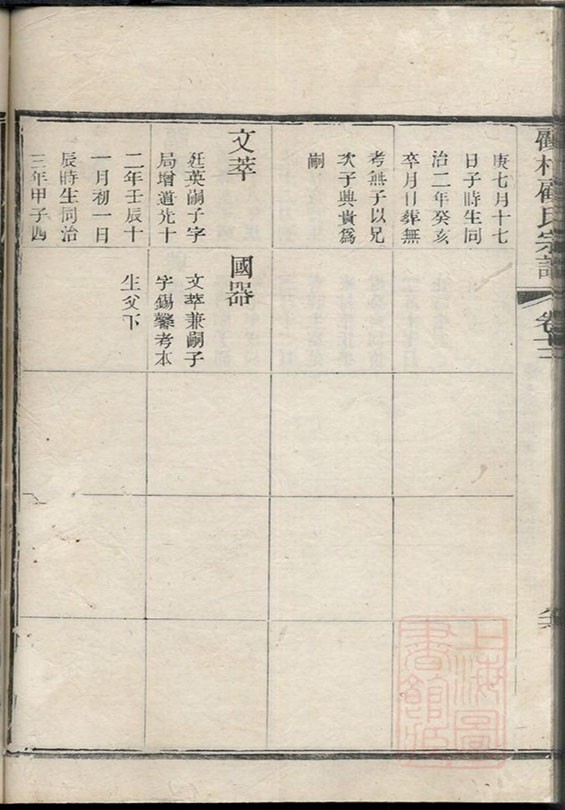 庚七月十七
日子時生同
治二年癸亥
卒月日葬無
考無子以兄
次子興貴爲
嗣
文萃
廷英嗣子字
局增道光十
二年壬辰十
一月初一日
辰時生同治
三年甲子四
國器
文萃兼嗣子
字錫馨考本
生父下
村顧氏宗譜
卷十三
上海圖
書館藏